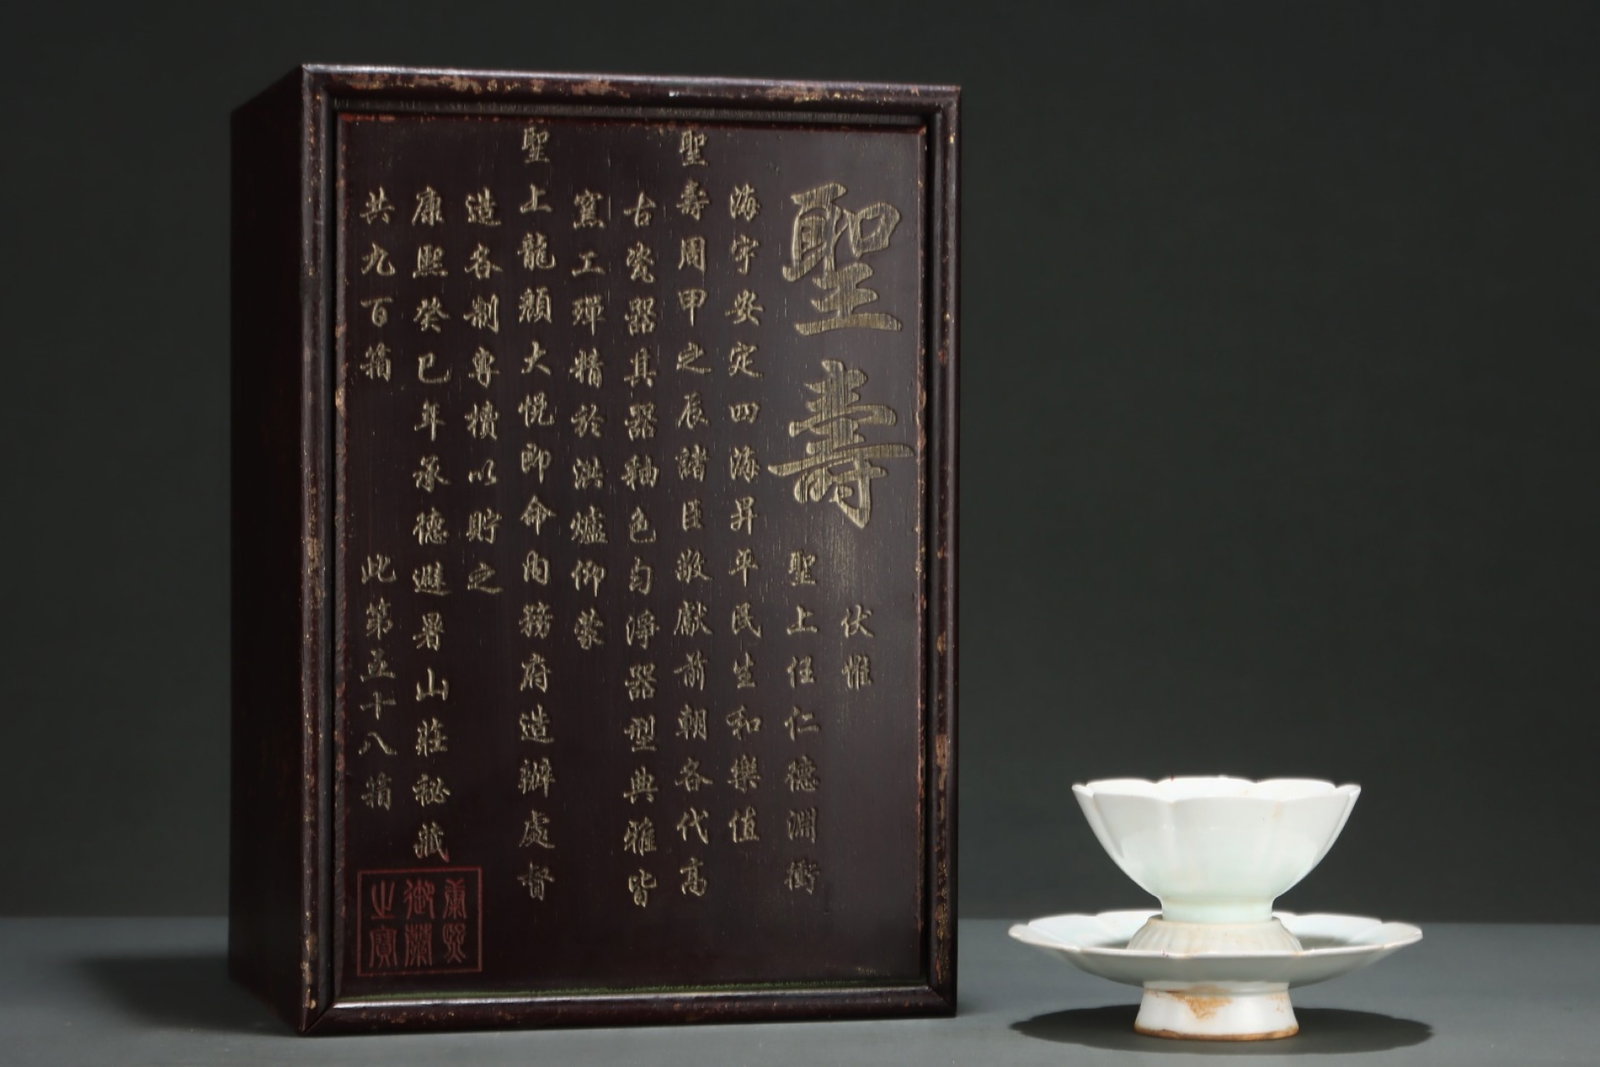 聖壽
伏惟
聖上任仁德淵衝
海宇安定四海昇平民生和樂值
聖壽周甲之辰諸臣敬獻前朝各代高
古瓷器其器釉色勻淨器型典雅皆
窯工殫精於洪爐仰蒙
聖上龍顏大悅即命内務府造辦處督
造各制專櫝以貯之
康熙癸巳年承德避暑山莊秘藏
共九百箱 此第五十八箱
康熙御覽之寶